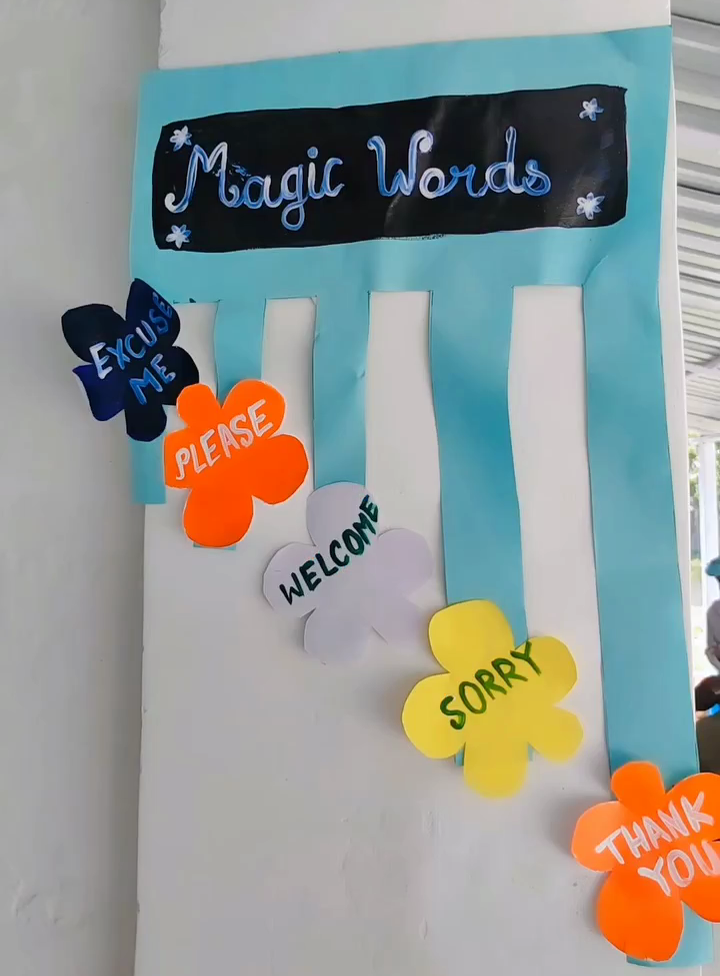 Magic Words
EXCUSE
ME
PLEASE
WELCOME
SORRY
THANK
YOU